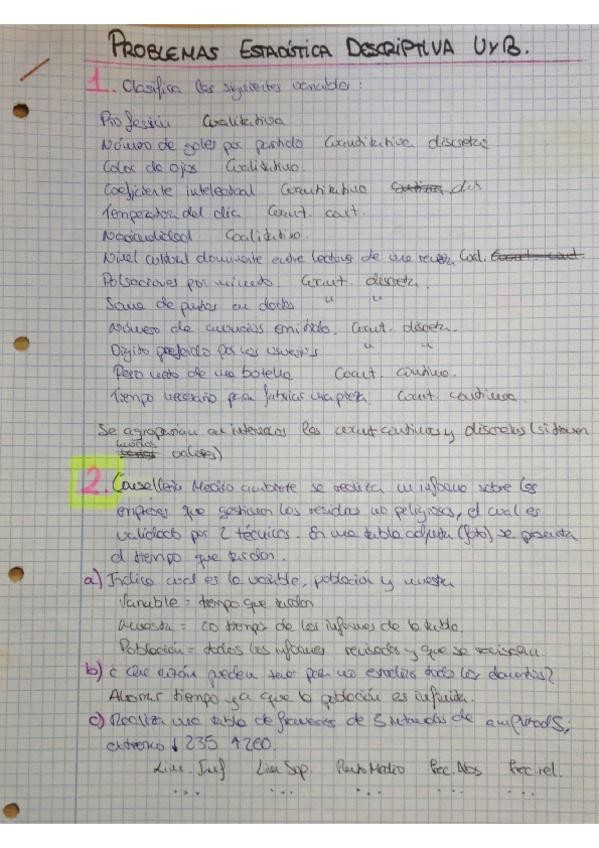 PROBLEMAS ESTADÍSTICA DESCRIPTIVA U y B.
1. Clasifica las siguientes variables:
Profesión Cualitativa
Número de goles por partido Cuantitativa discreta
Color de ojos Cualitativo.
Coeficiente intelectual Cuantitativo dis
Temperatura del día Cuant. cont.
Nacionalidad Cualitativo.
Nivel cultural dominante entre lectores de una revista Cual.
Pulsaciones por minuto. Cuant. discreta.
Suma de puntos en dados " "
Número de anuncios emitido. Cuant. discreta.
Dígito preferido por los usuarios " "
Peso neto de una botella Cuant. continuo.
Tiempo necesario para fabricar una pieza. Cuant. continua.
Se agruparían en intervalos las cuant continuas y discretas (si tienen
muchos valores)
2. Consellería Medio ambiente se realiza un informe sobre las
empresas que gestionan los residuos no peligrosos, el cual es
validado por 2 técnicos. En una tabla adjunta (foto) se presenta
el tiempo que tardan.
a) Indica cual es la variable, población y muestra
Variable = tiempo que tardan
Muestra = tiempos de los informes de la tabla.
Población = todos los informes revisados y que se revisarán.
b) ¿Que razón pueden tener para no estudiar todos los documentos?
Ahorrar tiempo ya que la población es infinita.
c) Realiza una tabla de frecuencias de 5 intervalos de amplitud 5,
extremo ↓ 235 ↑ 260.
Lim. Inf Lim Sup. Punto Medio Frec. Abs Frec. rel.
... ... ... ... ...